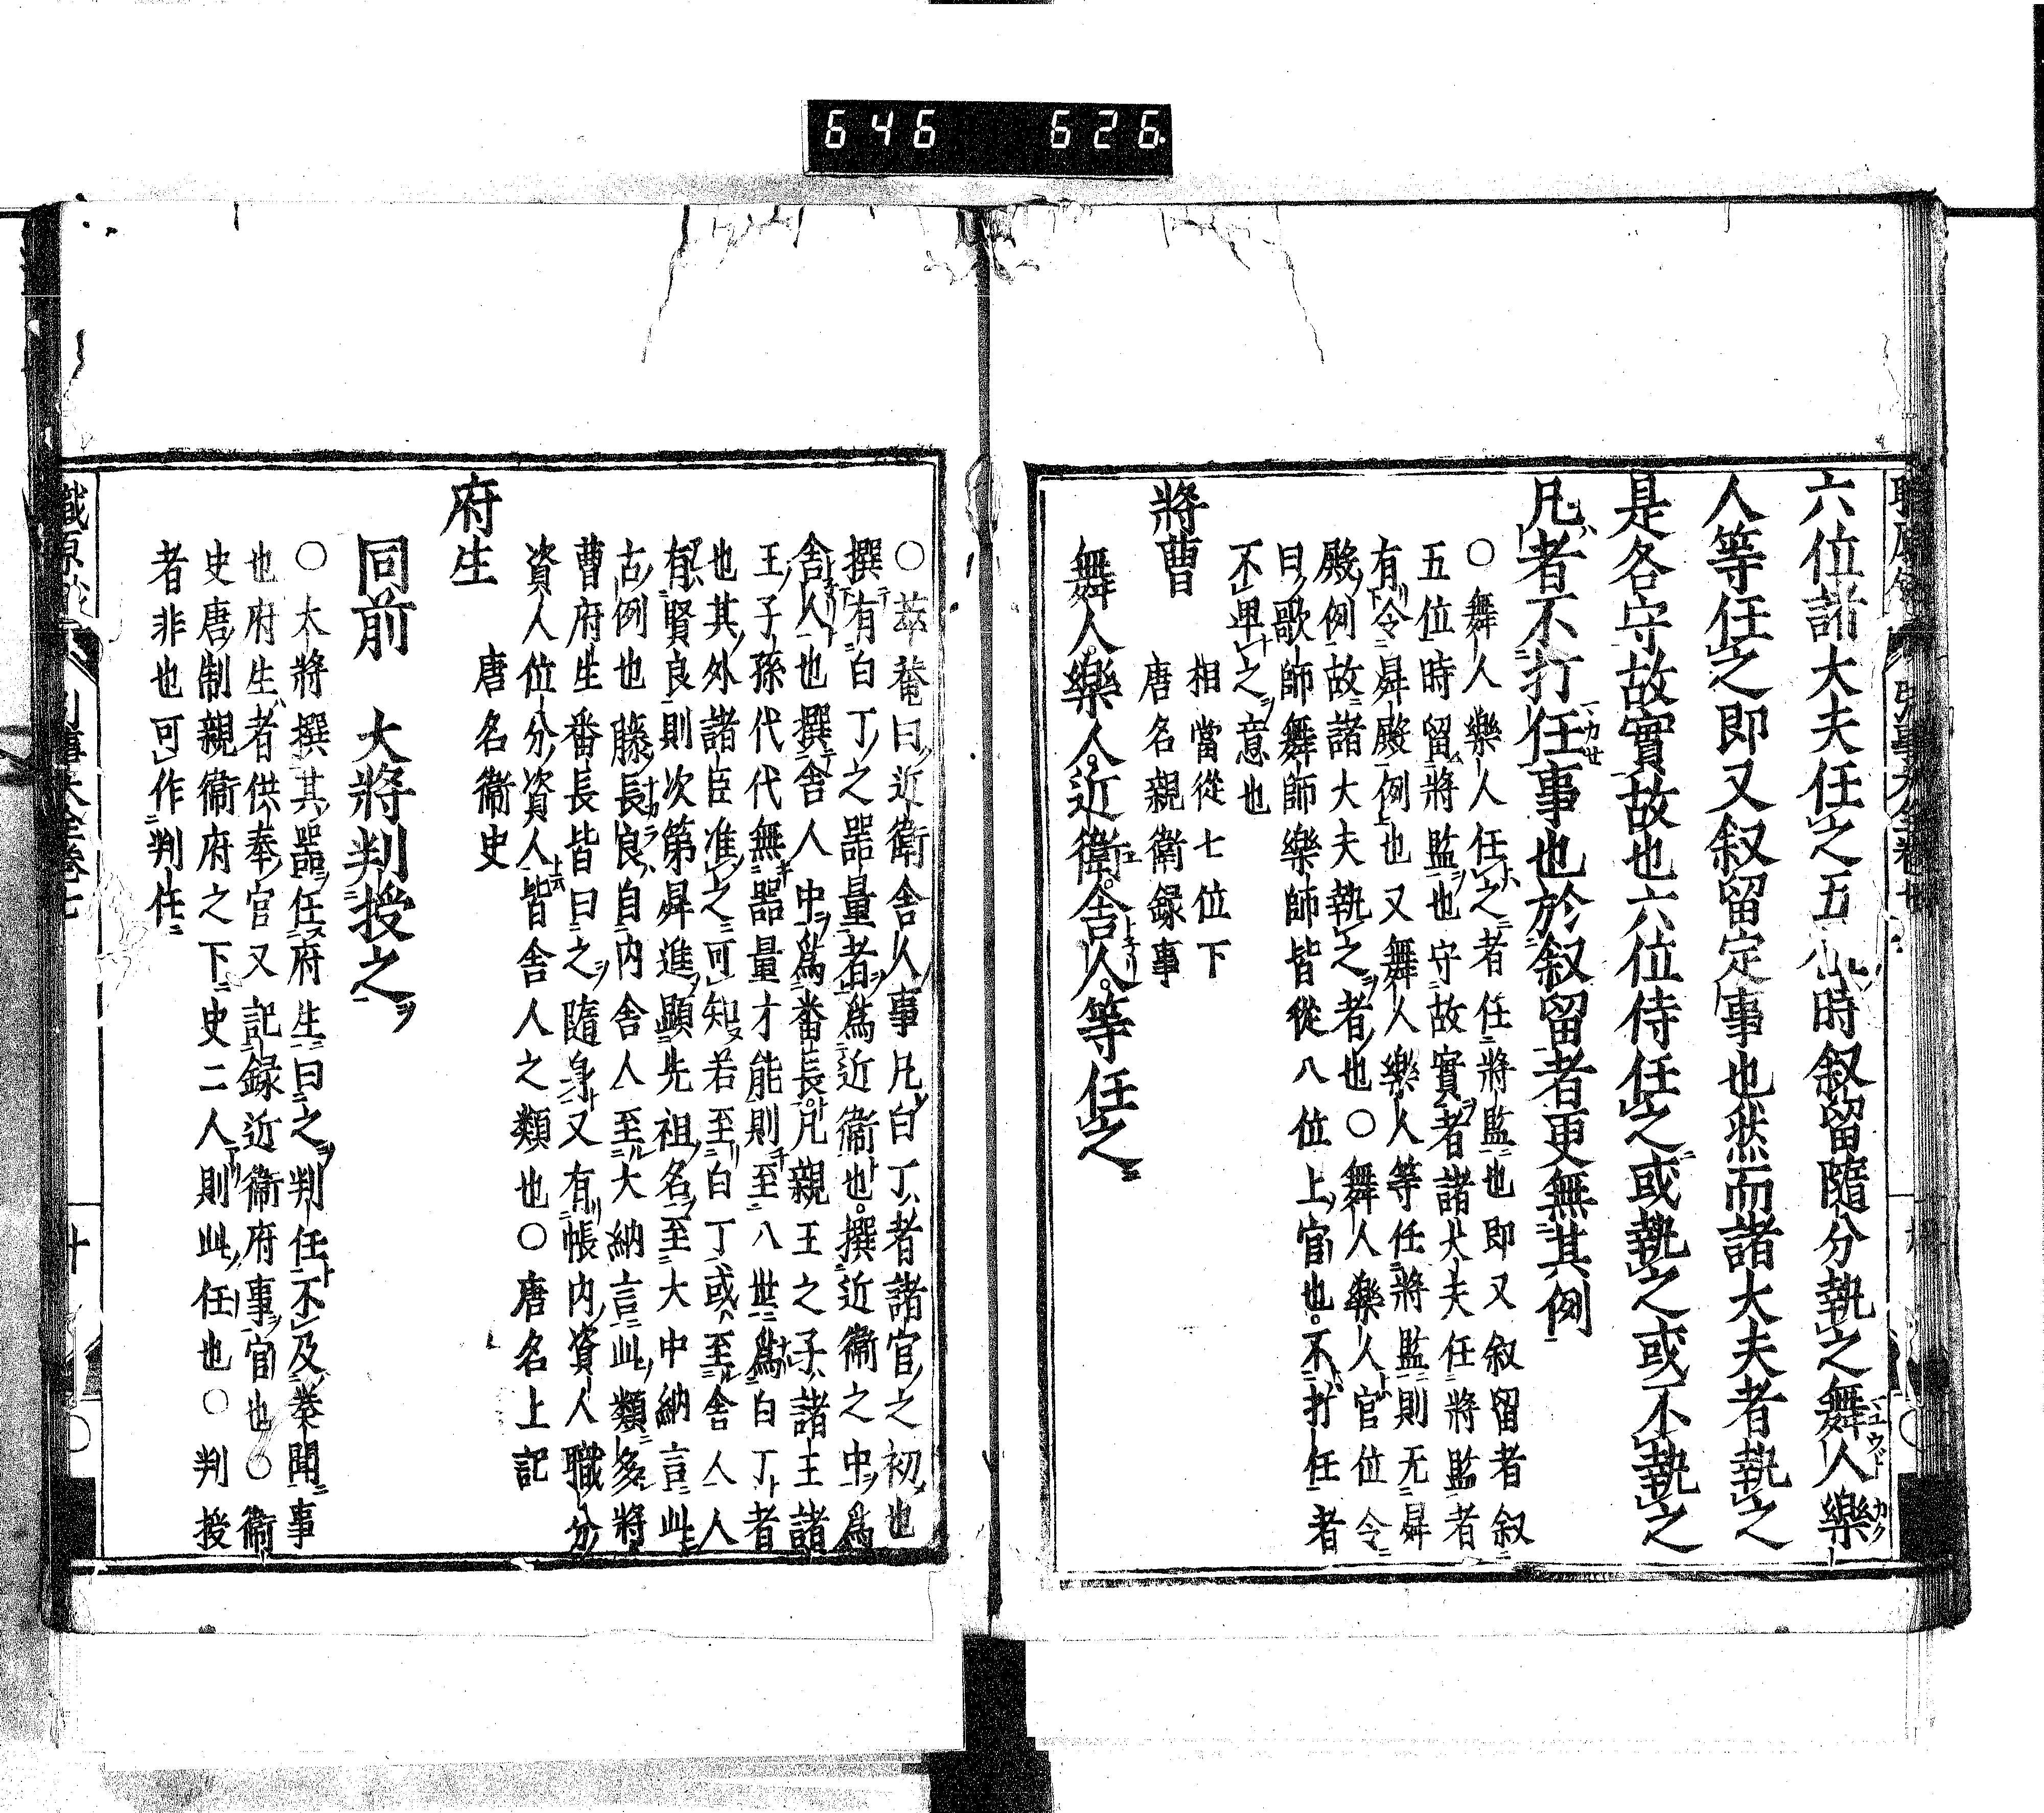 646 626
六位諸大夫任之五位時叙留隨分執之舞人樂
人等任之即又叙留定事也然而諸大夫者執之
是各守故實故也六位侍任之或執之或不執之
凡者不打任事也於叙留者更無其例
○舞人樂人任之者任將監也即又叙留者叙
五位時留將監也守故實者諸大夫任將監者
有令舁殿例也又舞人樂人等任將監則无舁
殿例故諸大夫執之者也○舞人樂人官位令
曰歌師舞師樂師皆從八位上官也不打任者
不卑之意也
將曹
相當從七位下
唐名親衛録事
舞人樂人近衛舍人等任之
○萃菴曰近衛舍人事凡白丁者諸官之初也
撰有白丁之器量者爲近衛也撰近衛之中爲
舍人也撰舍人中爲番長凡親王之子諸王諸
王子孫代代無器量才能則至八世爲白丁者
也其外諸臣准之可知若至白丁或至舍人人
有賢良則次第舁進顯先祖名至大中納言此
古例也藤長良自内舍人至大納言此類多將
曹府生番長皆曰之隨身又有帳内資人職分
資人位分資人皆舍人之類也○唐名上記
府生
唐名衛史
同前 大將判授之
○大將撰其器任府生曰之判任不及奏聞事
也府生者供奉官又記録近衛府事官也○衛
史唐制親衛府之下史二人則此任也○判授
者非也可作判任
職原鈔